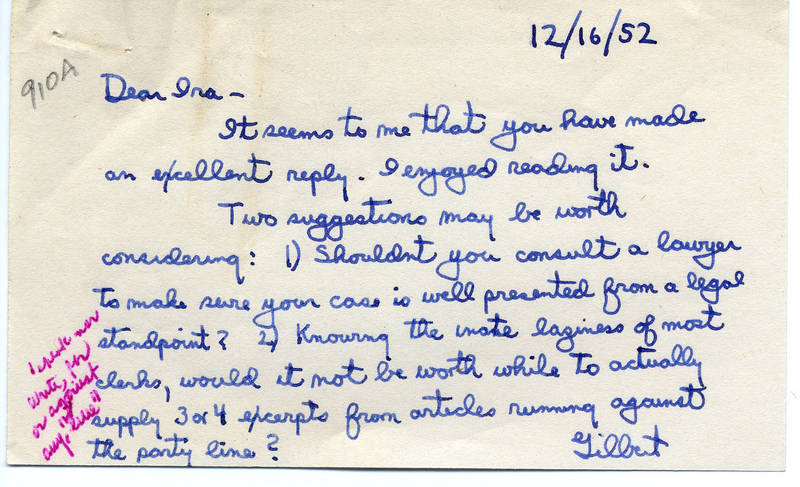 12/16/52
910A
Dear Ira -
It seems to me that you have made
an excellent reply. I enjoyed reading it.
Two suggestions may be worth
considering: 1) Shouldn't you consult a lawyer
to make sure your case is well presented from a legal
standpoint? 2) Knowing the inate laziness of most
clerks, would it not be worth while to actually
supply 3 or 4 excerpts from articles running against
the party line?
Gilbert
write, for
or against
any "line"